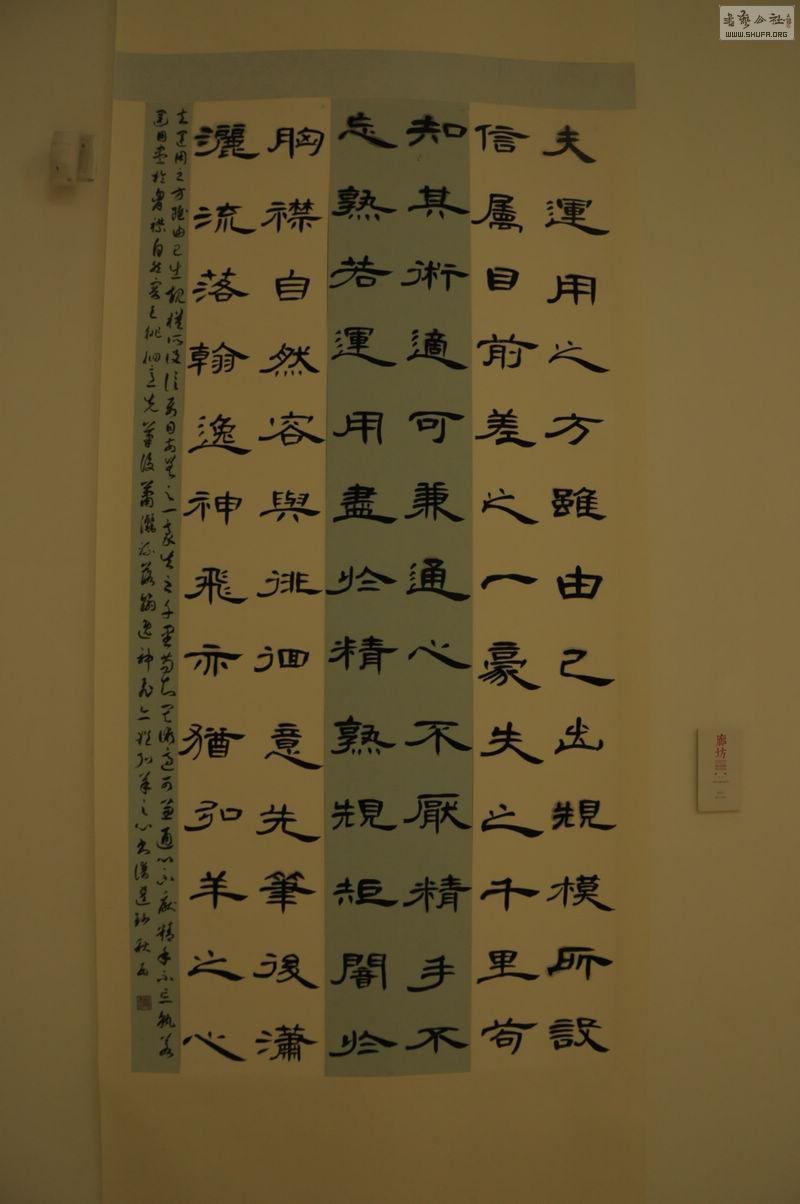 夫運用之方雖由己出規模所設
信屬目前差之一豪失之千里苟
知其術適可兼通心不厭精手不
忘熟若運用盡於精熟規矩闇於
胸襟自然容與徘徊意先筆後瀟
灑流落翰逸神飛亦猶弘羊之心
夫運用之方雖由己出規模所設信屬目前差之一豪失之千里苟知其術適可兼通心不厭精手不忘熟若
運用盡於胸襟自然容與徘徊意先筆後瀟灑流落翰逸神飛亦猶弘羊之心書譜選
廊坊
書藝公社
WWW.SHUFA.ORG